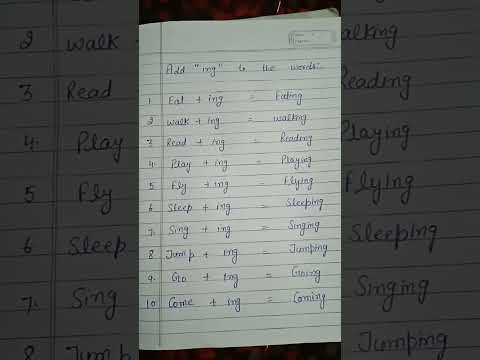 Add "ing" to the words:-
1 Eat + ing = Eating
2 Walk + ing = walking
3 Read + ing = Reading
4. Play + ing = Playing
5 Fly + ing = Flying
6 Sleep + ing = Sleeping
7. Sing + ing = Singing
8 Jump + ing = Jumping
9. Go + ing = Going
10 Come + ing = Coming
2 Walk
3 Read
4. Play
5 Fly
6 Sleep
7. Sing
8 Jump
alking
Reading
Playing
Flying
Sleeping
Singing
Jumping